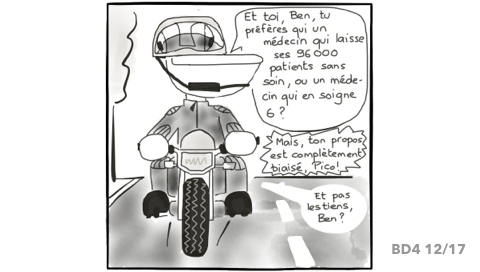 Et toi, Ben, tu
préfères qui un
médecin qui laisse
ses 96000
patients sans
soin, ou un méde-
cin qui en soigne
6?
Mais, ton propos
est complètement
biaisé, Pico!
Et pas
les tiens,
Ben?
BD4 12/17